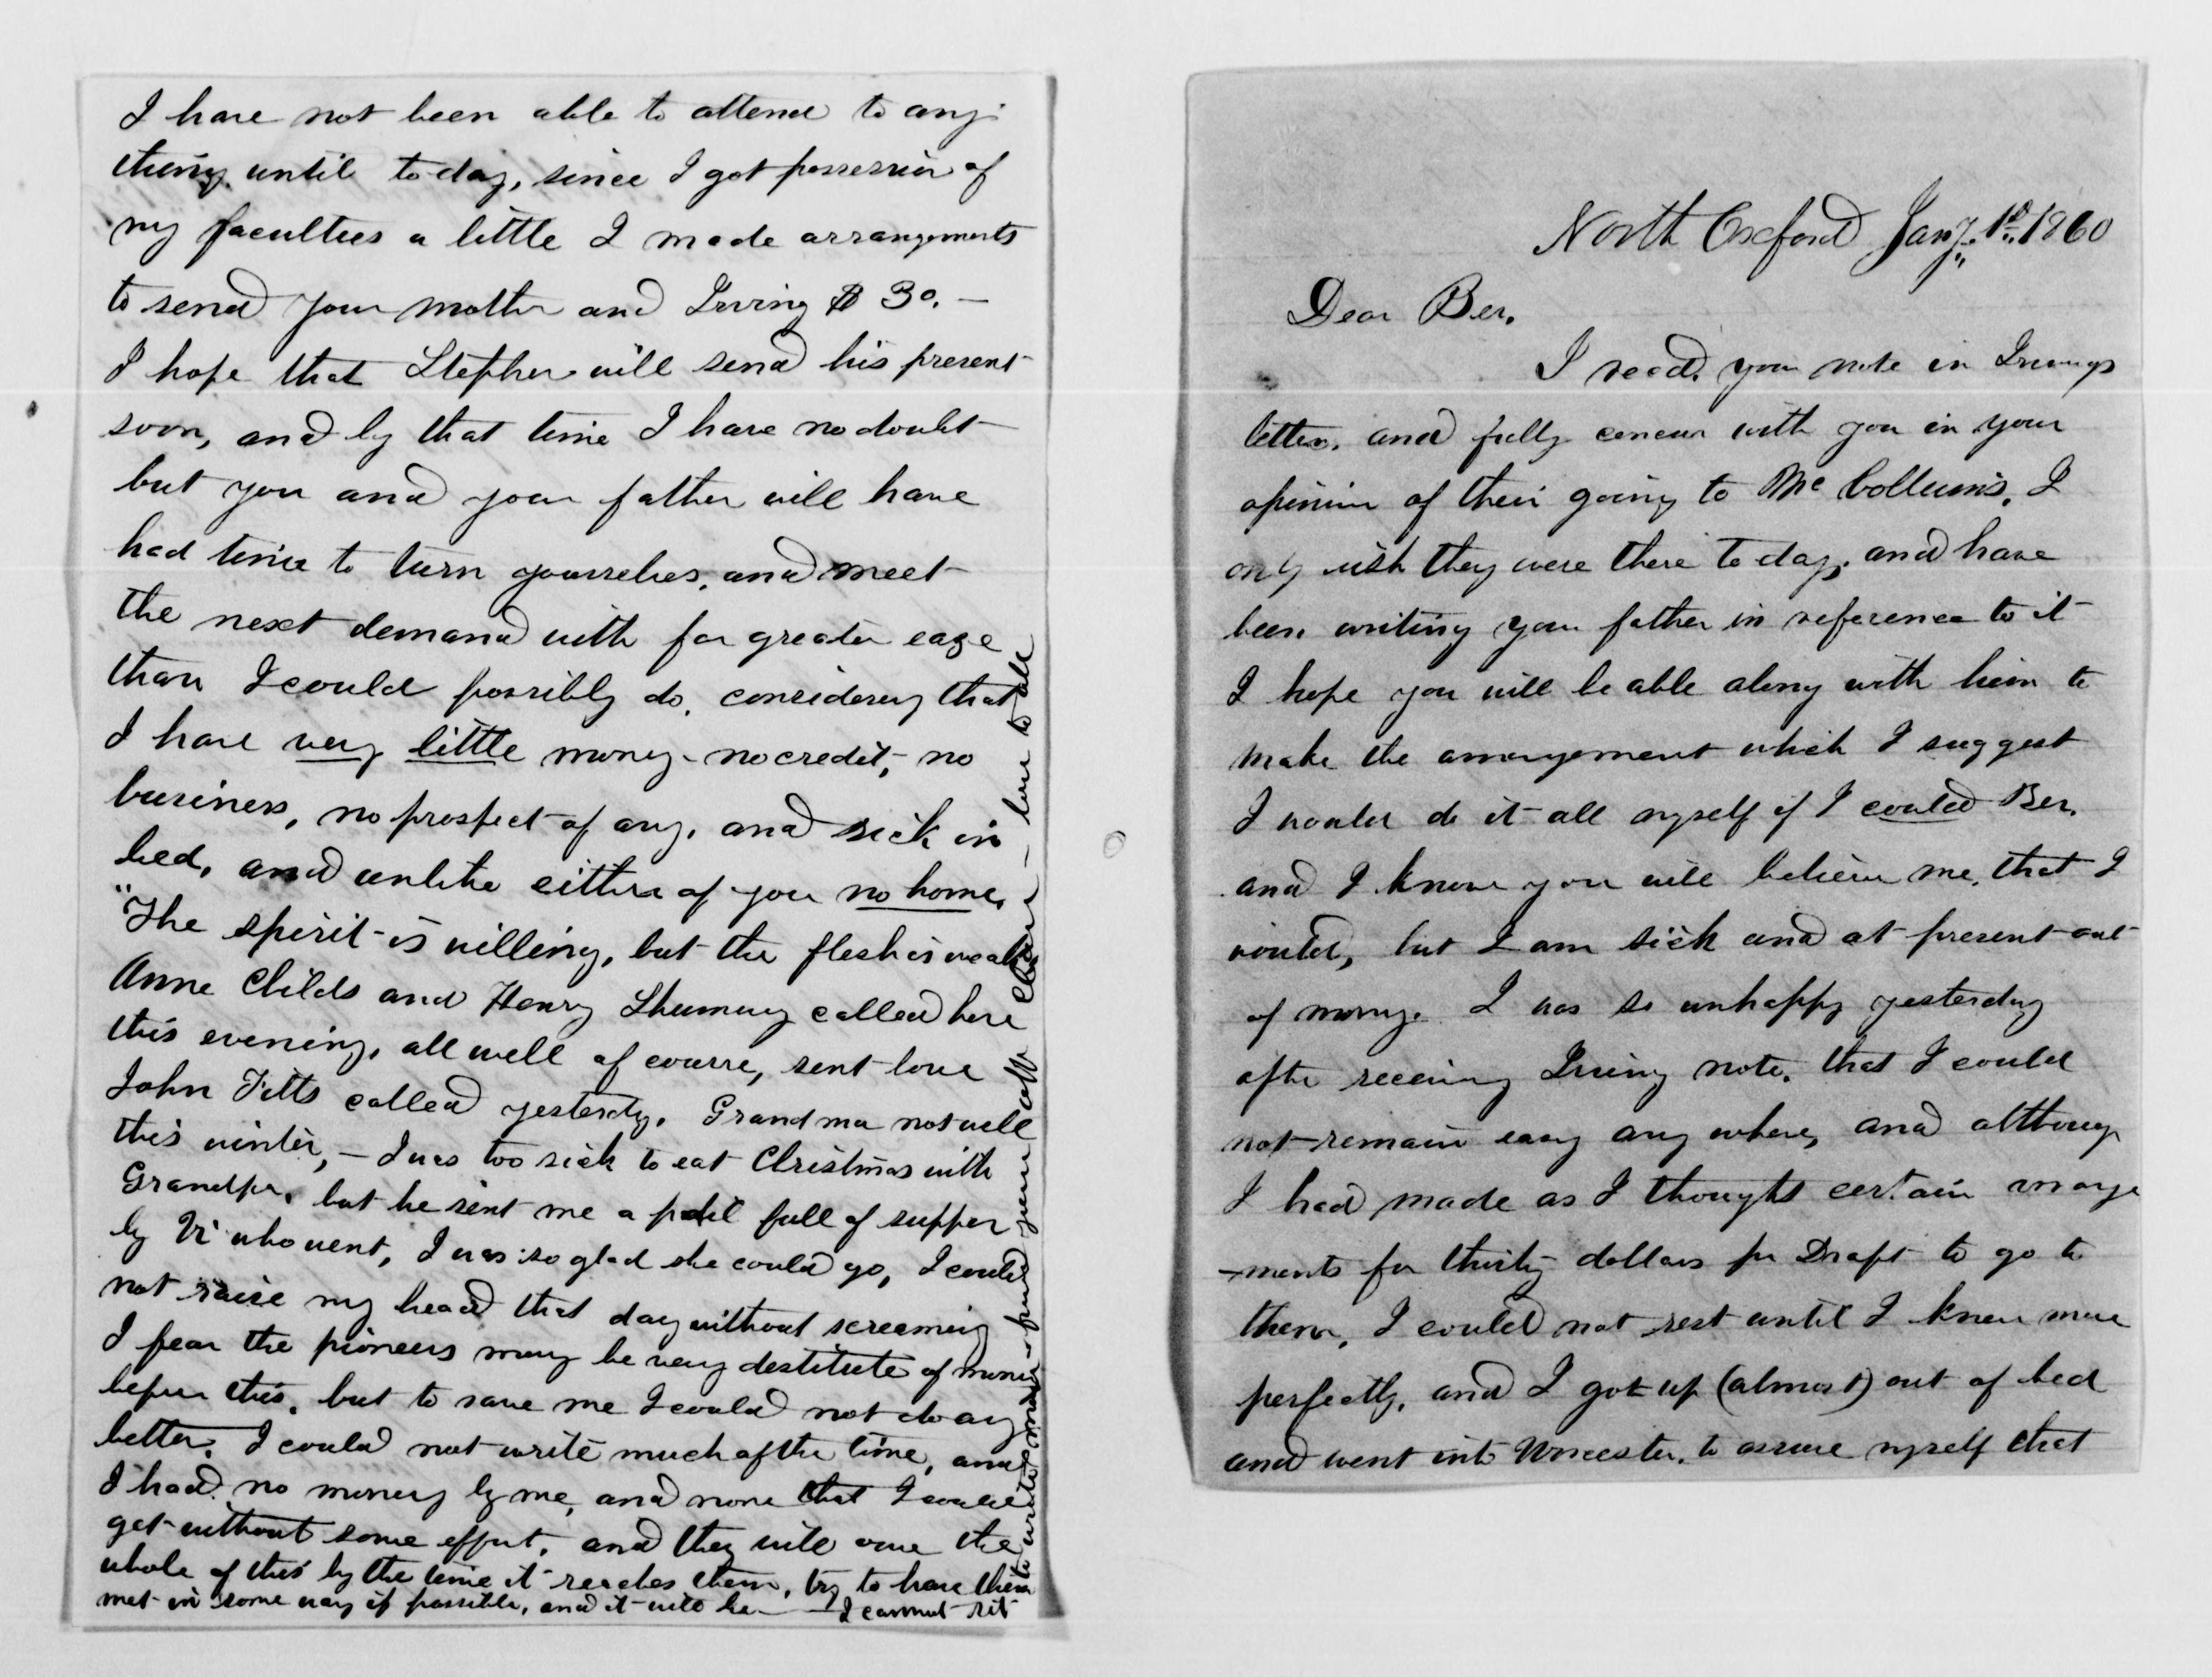 North Oxford Jany. 1st. 1860
Dear Ber.
I recd. your note in Irvings
letter. and fully concur with you in your
opinion of their going to McCollum's, I
only wish they were there to day, and have
been writing your father in reference to it
I hope you will be able along with him to
make the arrangement which I suggest
I would do it all myself if I could Ber.
and I know you will believe me, that I
would, but I am sick and at present out
of money. I was so unhappy yesterday
after receiving Irving note. that I could
not remain easy any where, and although
I had made as I thought certain arrange
-ments for thirty dollars pr Draft to go to
them, I could not rest until I knew more
perfectly, and I got up (almost) out of bed
and went into Worcester, to assure myself that
I have not been able to attend to any-
thing until to day, since I got possession of
my faculties a little I made arrangements
to send your mother and Irving $30. —
I hope that Stephen will send his present
soon, and by that time I have no doubt
but you and your father will have
had time to turn yourselves, and meet
the next demand with far greater ease
than I could possibly do, considering that
I have very little money - no credit, no
business, no prospect of any, and sick in
bed, and unlike either of you no home,
"The spirit is willing, but the flesh is weak
Anne Childs and Henry Shumway called here
this evening, all well of course, sent love
John Fitts called yesterdy. Grandma not well
this winter, — I was too sick to eat Christmas with
Grandpa, but he sent me a pail full of supper
by Vi who went, I was so glad she could go, I could
not raise my head that day without screaming
I fear the pioneers may be very destitute of money
before this, but to save me I could not do any
better. I could not write much of the time, and
I had no money by me, and none that I could
get without some effort, and they will owe the
whole of this by the time it reaches them, try to have them
met in some way if possible, and it will be — I cannot sit
to write more - from your aff Clara — love to all